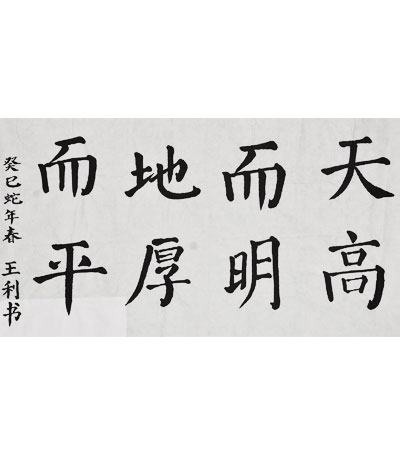 天高
而明
地厚
而平
癸巳蛇年春 王利书